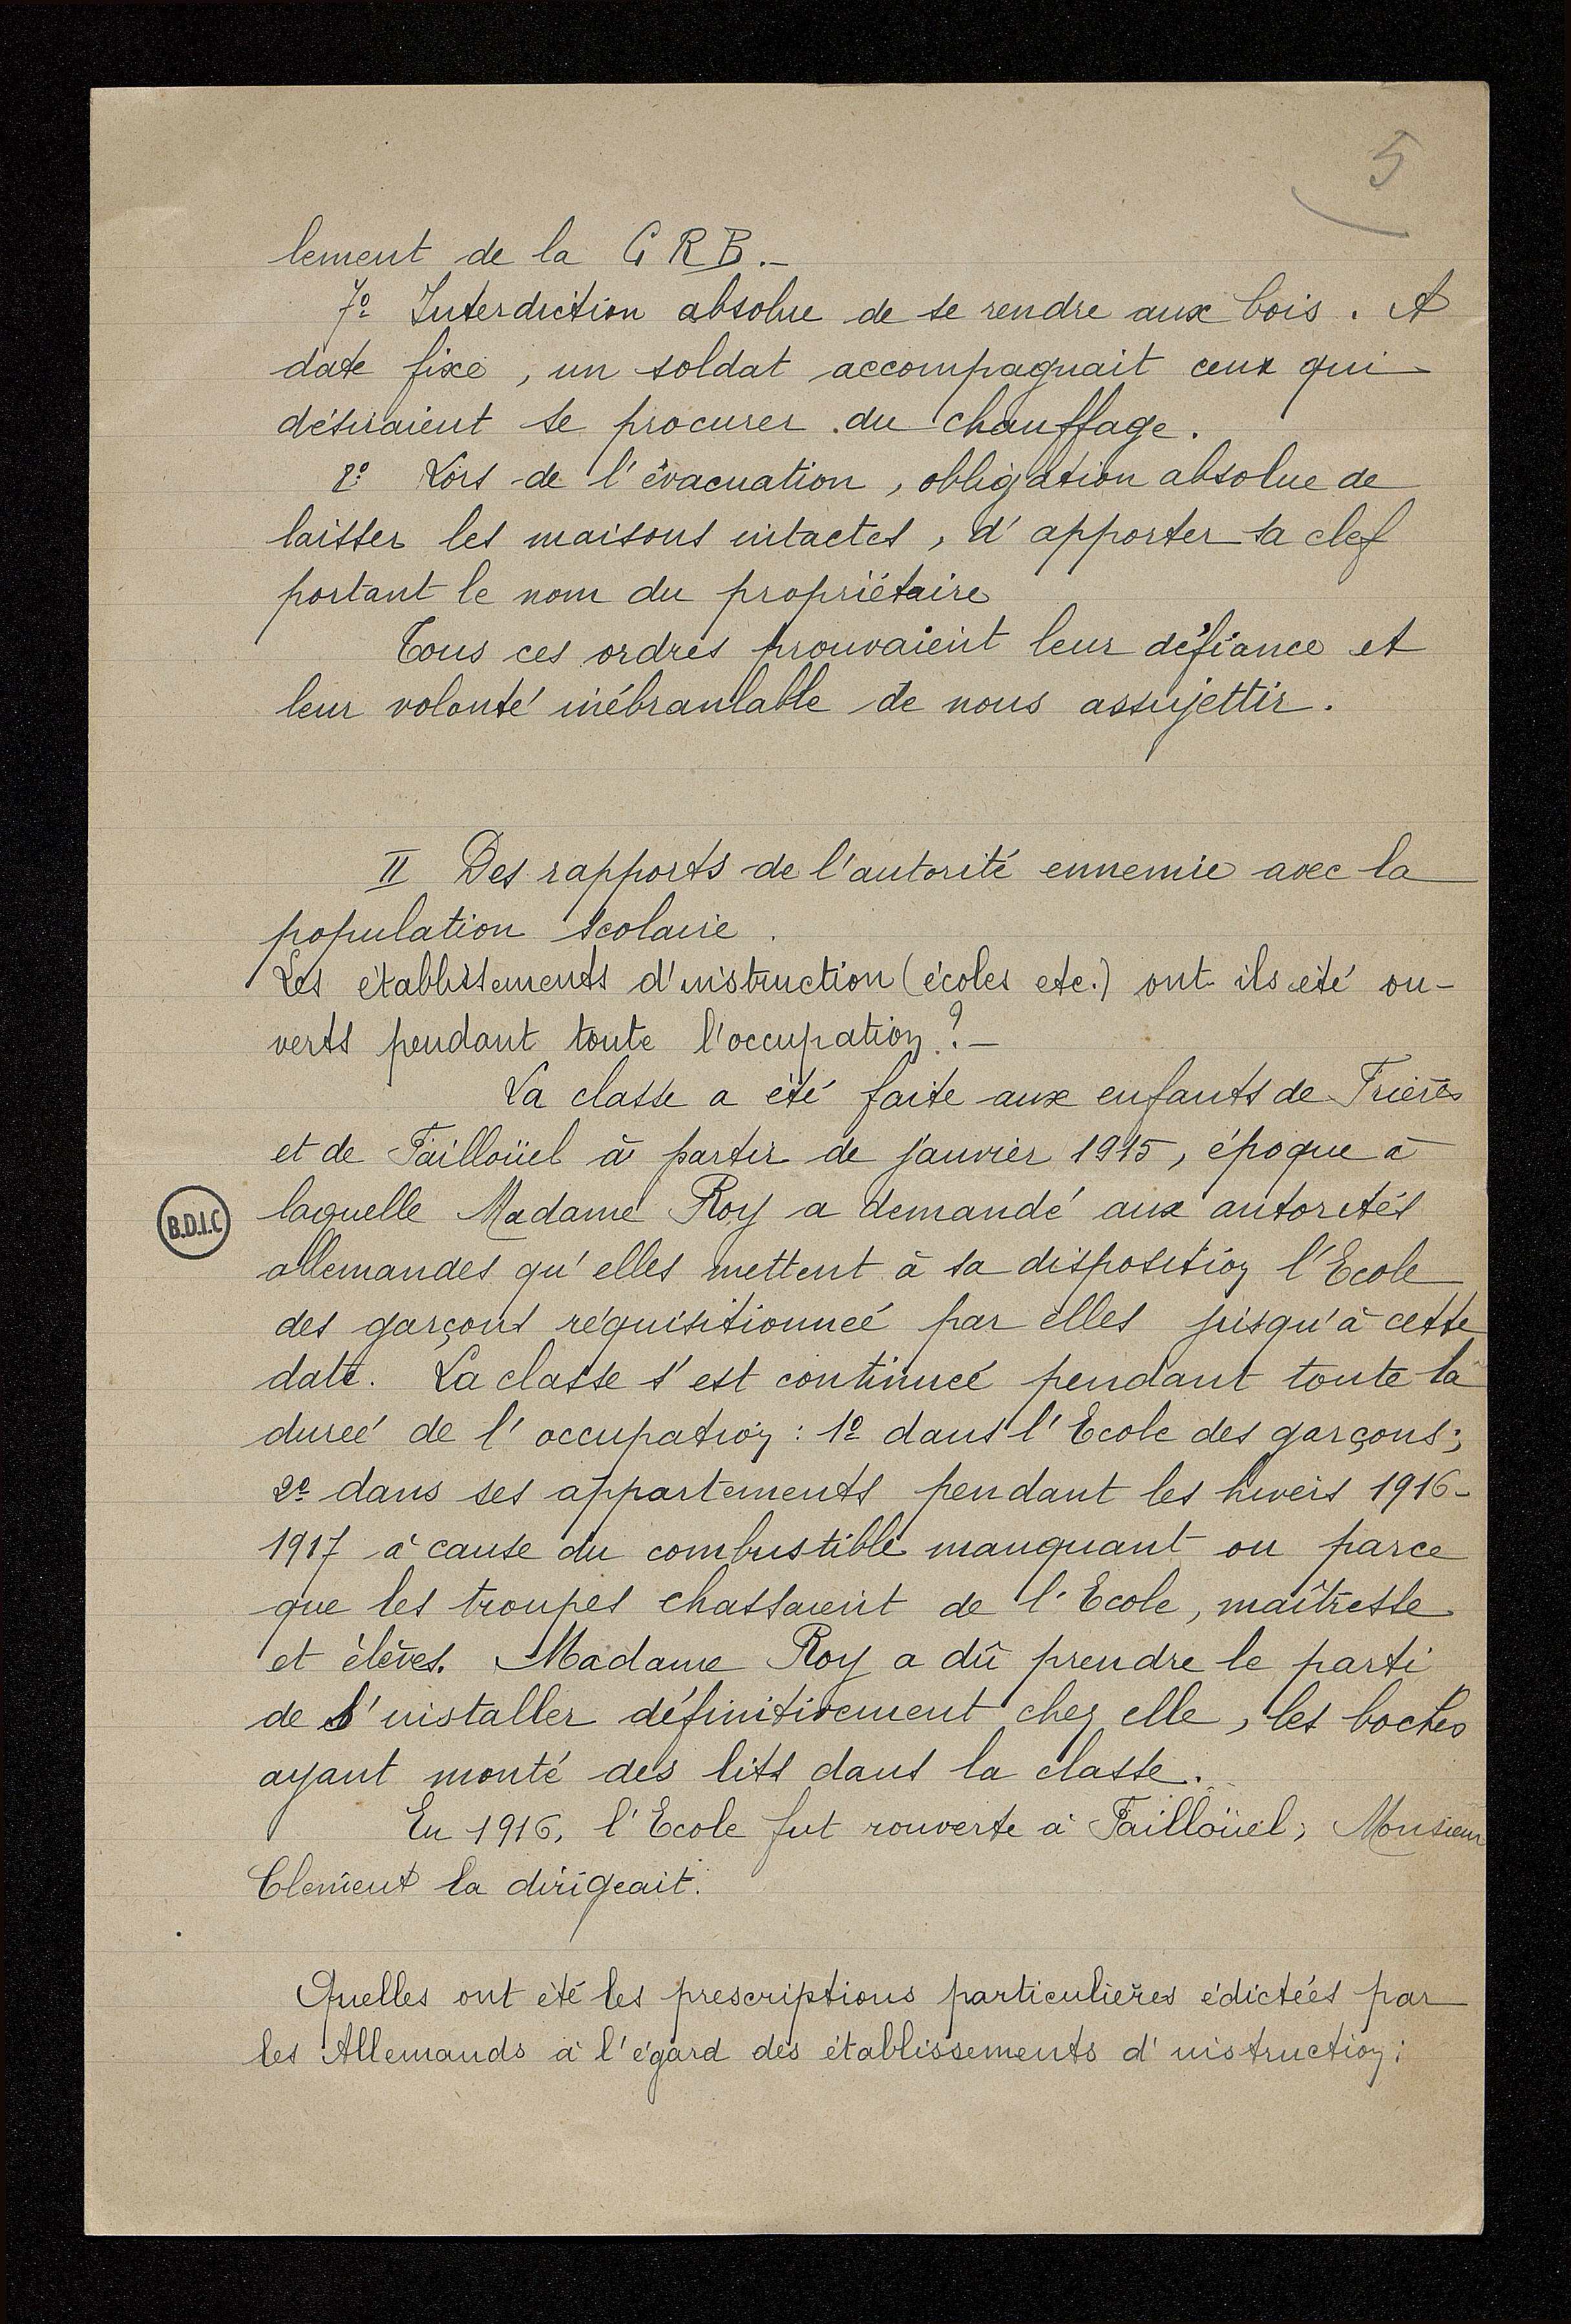 5
lement de la C R B.-
7º Interdiction absolue de se rendre aux bois. A
date fixe, un soldat accompagnait ceux qui
désiraient se procurer du chauffage.
8º Lors de l'évacuation, obligation absolue de
laisser les maisons intactes, d'apporter sa clef
portant le nom du propriétaire
Tous ces ordres prouvaient leur défiance et
leur volonté inébranlable de nous assujettir.
II Des rapports de l'autorité ennemie avec la
population scolaire.
Les établissements d'instruction (écoles etc.) ont-ils été ou-
verts pendant toute l'occupation ?-
La classe a été faite aux enfants de Frières
et de Faillouël à partir de janvier 1915, époque à
laquelle Madame Roy a demandé aux autorités
allemandes qu'elles mettent à sa disposition l'Ecole
des garçons réquisitionnée par elles jusqu'à cette
date. La classe s'est continuée pendant toute la
durée de l'occupation : 1º dans l'Ecole des garçons;
2º dans ses appartements pendant les hivers 1916-
1917 à cause du combustible manquant ou parce
que les troupes chassaient de l'Ecole, maîtresse
et élèves. Madame Roy a dû prendre le parti
de s'installer définitivement chez elle, les boches
ayant monté des lits dans la classe.
En 1916, l'Ecole fut rouverte à Faillouël; Monsieur
Clément la dirigeait.
Quelles ont été les prescriptions particulières édictées par
les Allemands à l'égard des établissements d'instruction:
B.D.I.C